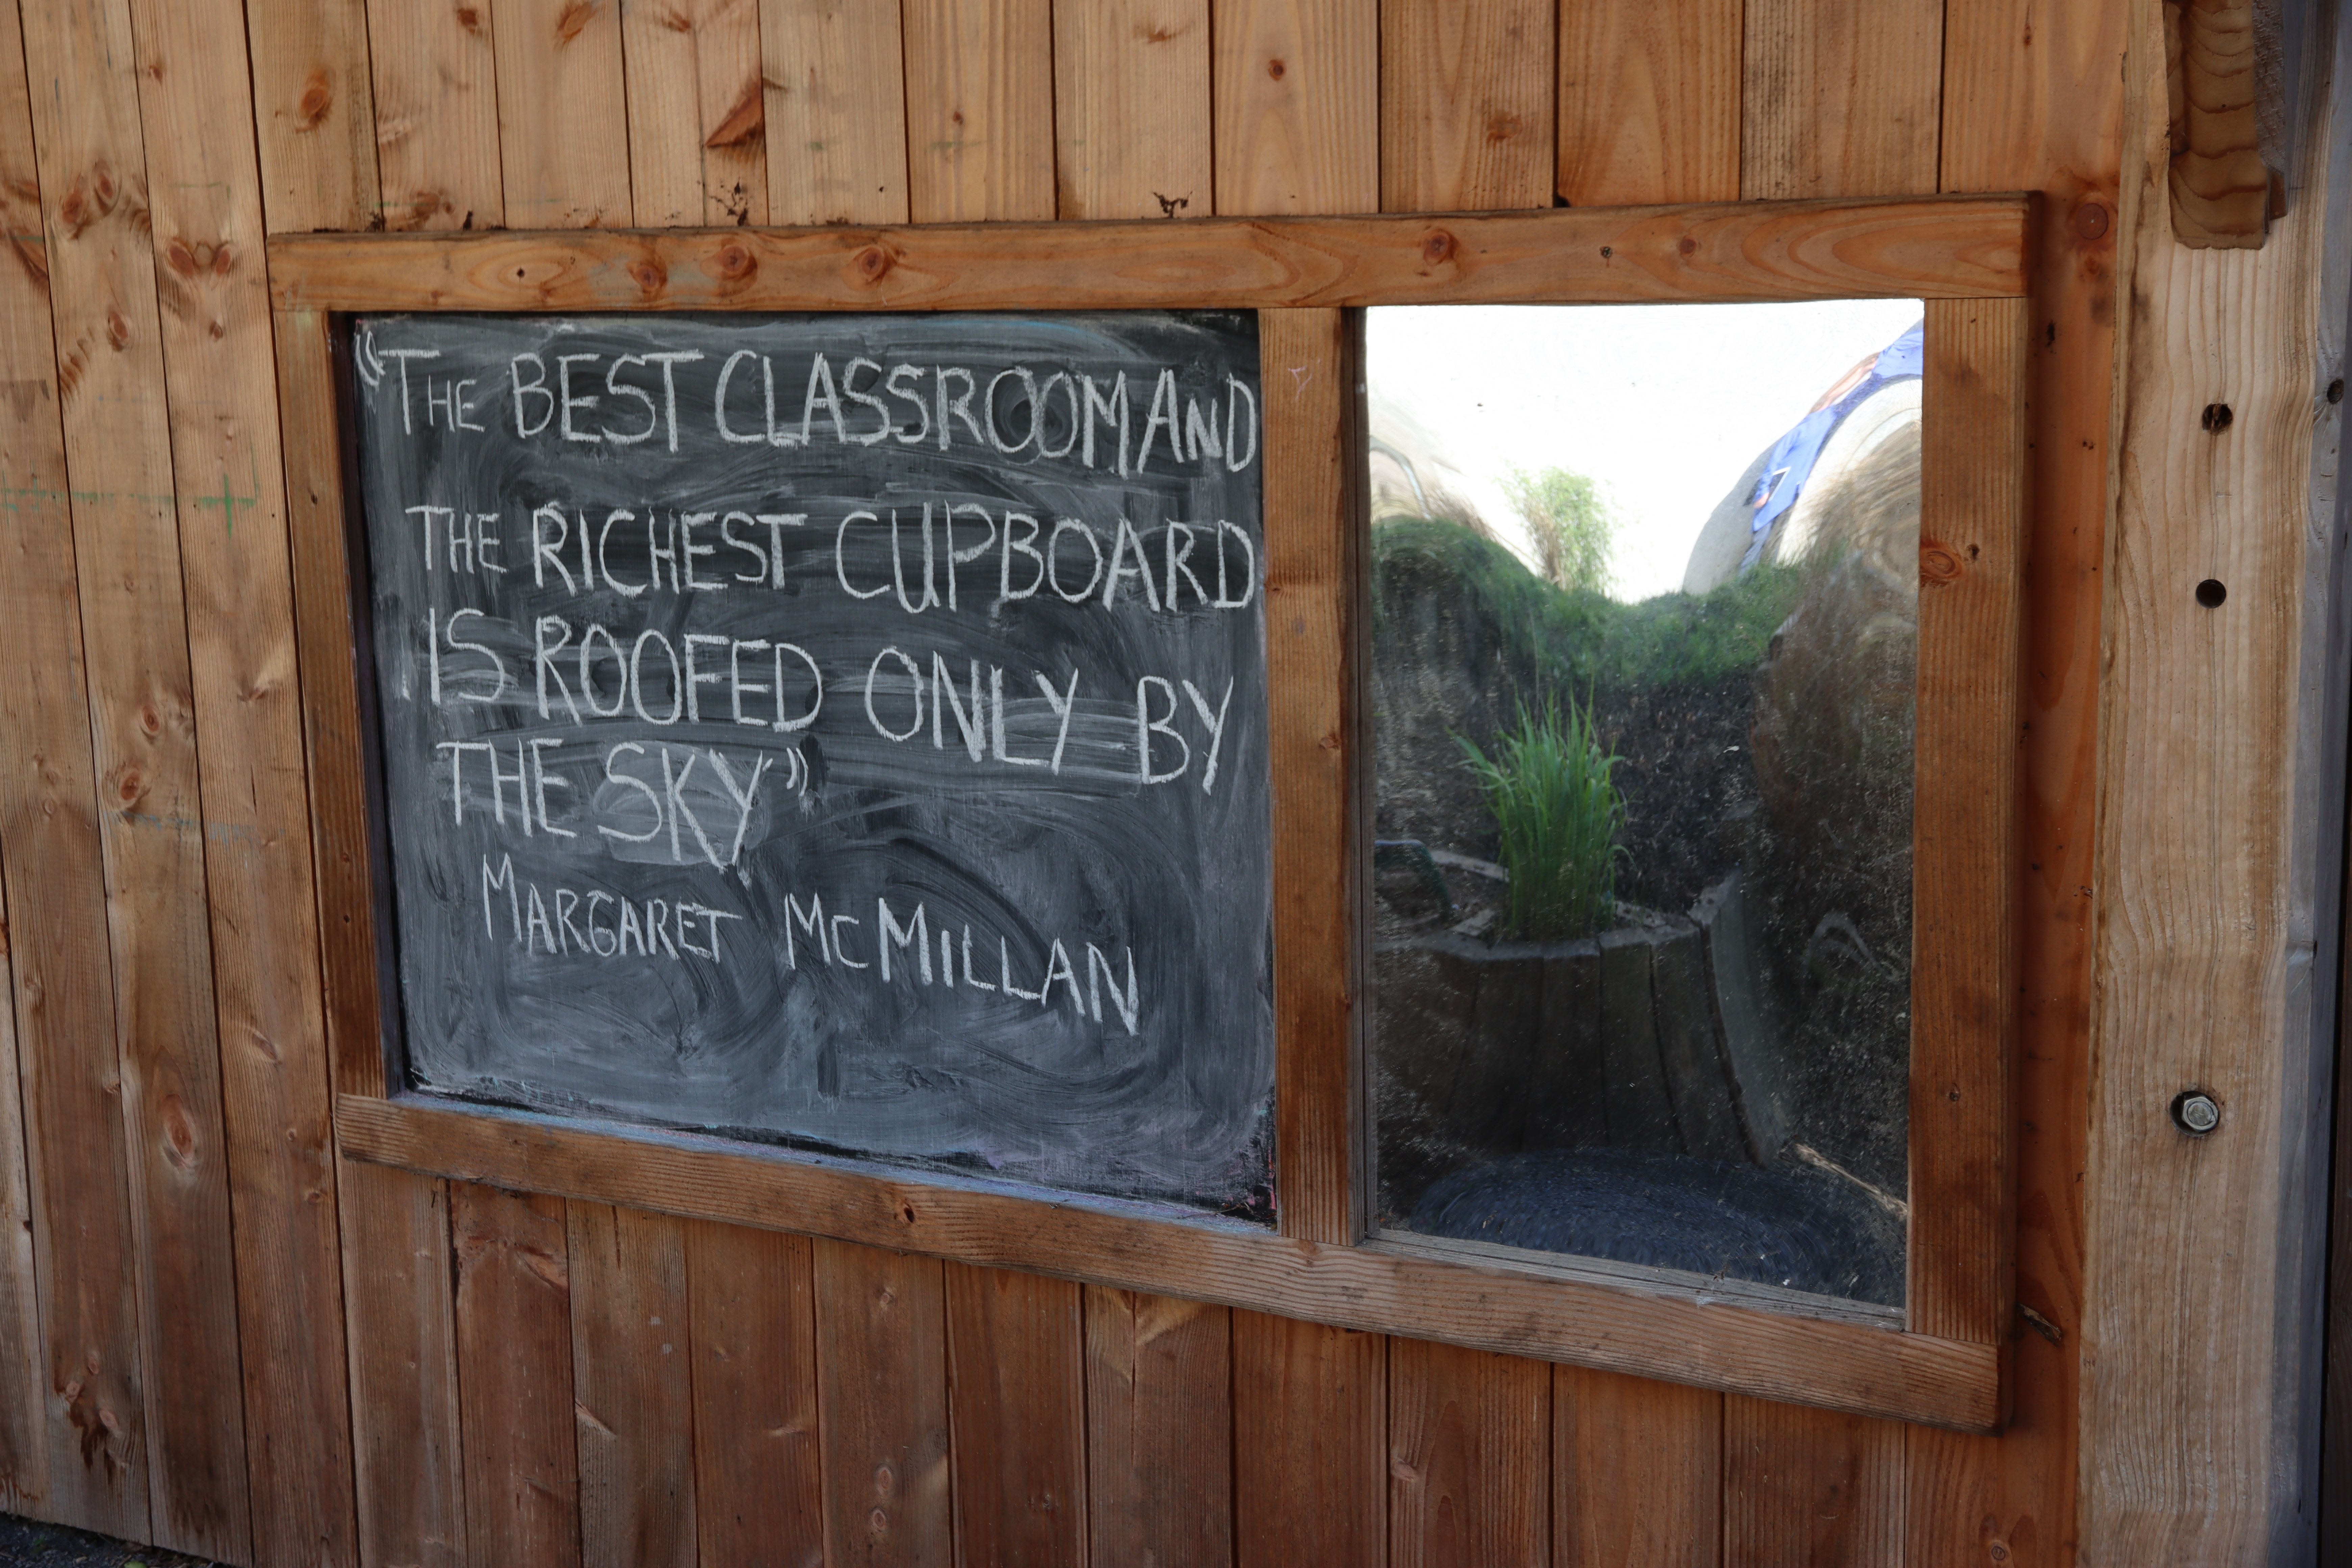 "THE BEST CLASSROOM AND
THE RICHEST CUPBOARD
IS ROOFED ONLY BY
THE SKY"
MARGARET MCMILLAN